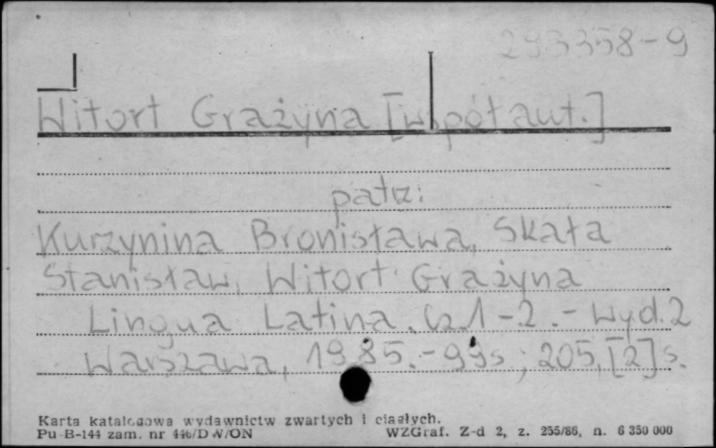 293358-9
Witort Grażyna [współaut.]
patrz:
Kurzynina Bronisława, Skała
Stanisław, Witort Grażyna
Lingua Latina. Cz. 1-2. - Wyd. 2
Warszawa, 1985. - 99 s.; 205, [2] s.
Karta katalogowa wydawnictw zwartych i ciągłych.
Pu B-144 zam. nr 446/DW/ON WZGraf. Z-d 2, z. 255/86, n. 6 350 000